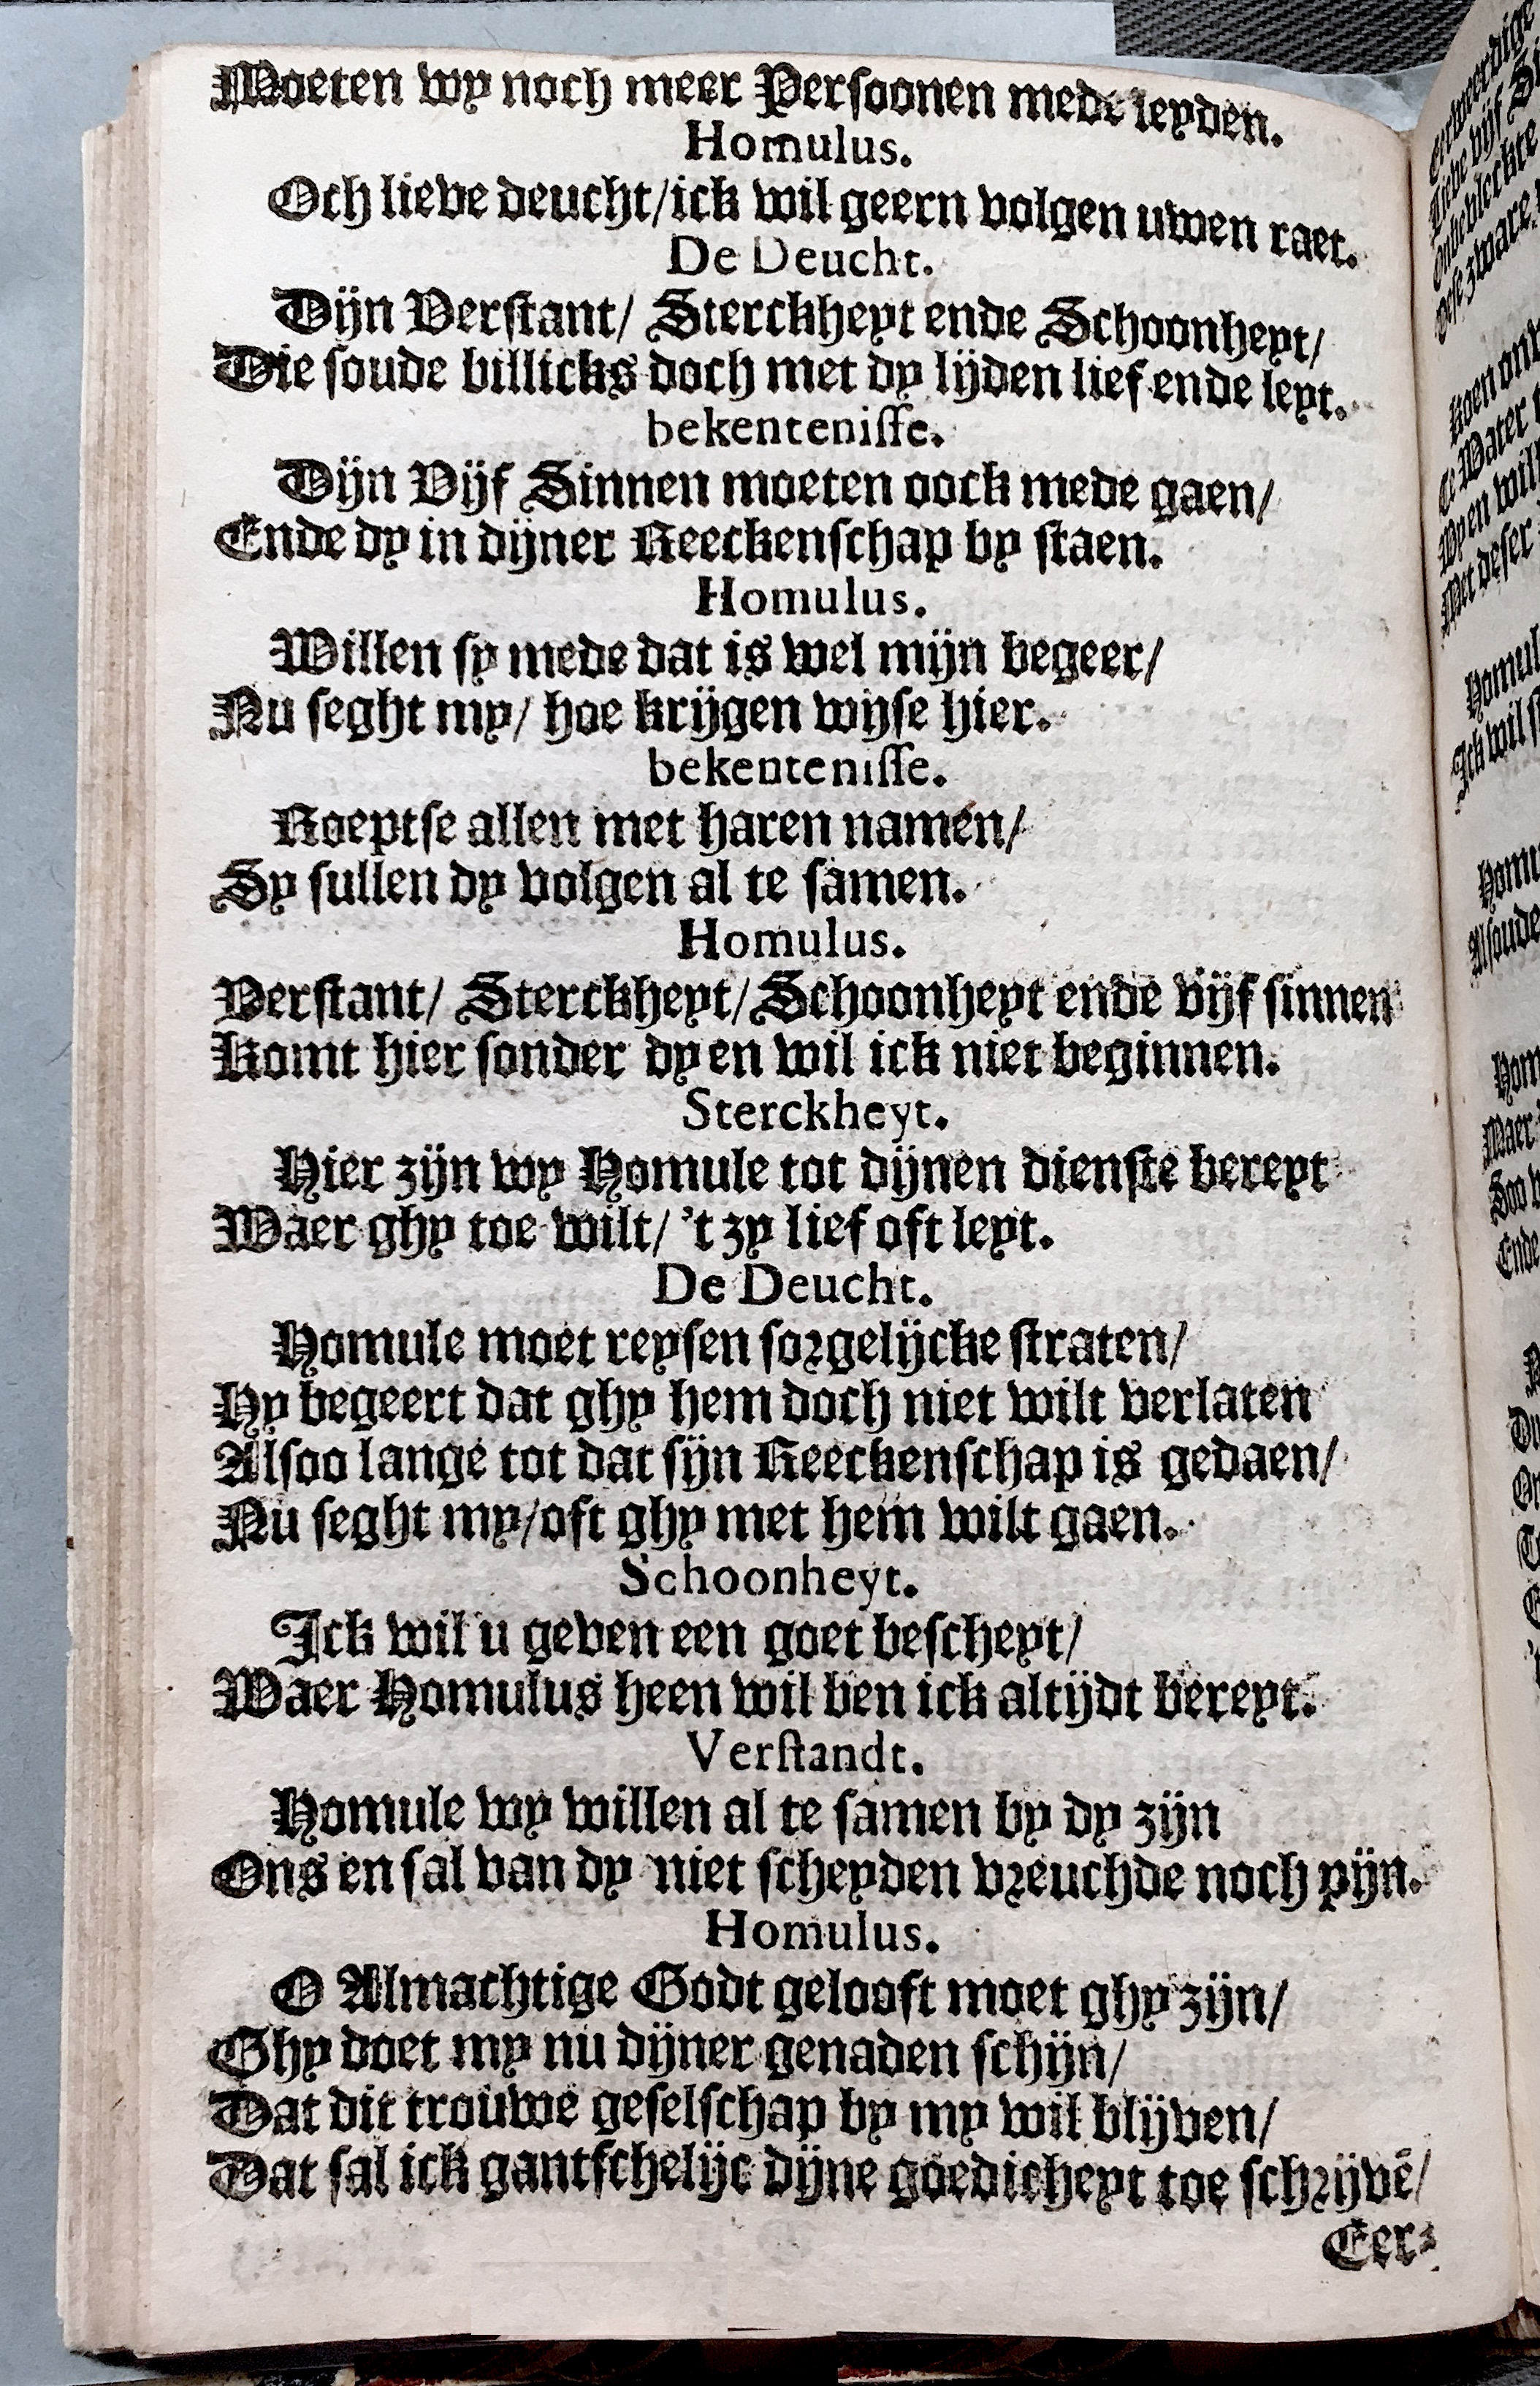 Moeten wy noch meer Persoonen mede leyden.
Homulus.
Och lieve deucht/ick wil geern volgen uwen raet.
De Deucht.
Dijn Verstant/ Sterckheyt ende Schoonheyt/
Die soude billicks doch met dy lijden lief ende leyt.
bekentenisse.
Dijn Vijf Sinnen moeten oock mede gaen/
Ende dy in dijner Reeckenschap by staen.
Homulus.
Willen sy mede dat is wel mijn begeer/
Nu seght my/ hoe krijgen wijse hier.
bekentenisse.
Roeptse allen met haren namen/
Sy sullen dy volgen al te samen.
Homulus.
Verstant/ Sterckheyt/Schoonheyt ende vijf sinnen
Komt hier sonder dy en wil ick niet beginnen.
Sterckheyt.
Hier zijn wy Homule tot dijnen dienste bereyt
Waer ghy toe wilt/ 't zy lief oft leyt.
De Deucht.
Homule moet reysen sorgelijcke straten/
Hy begeert dat ghy hem doch niet wilt verlaten
Alsoo lange tot dat sijn Reeckenschap is gedaen/
Nu seght my/oft ghy met hem wilt gaen.
Schoonheyt.
Ick wil u geven een goet bescheyt/
Waer Homulus heen wil ben ick altijdt bereyt.
Verstandt.
Homule wy willen al te samen by dy zijn
Ons en sal van dy niet scheyden vreuchde noch pijn.
Homulus.
O Almachtige Godt gelooft moet ghy zijn/
Ghy doet my nu dijner genaden schijn/
Dat dit trouwe geselschap by my wil blijven/
Dat sal ick gantschelijc dijne goedicheyt toe schrijvē/
Eer-